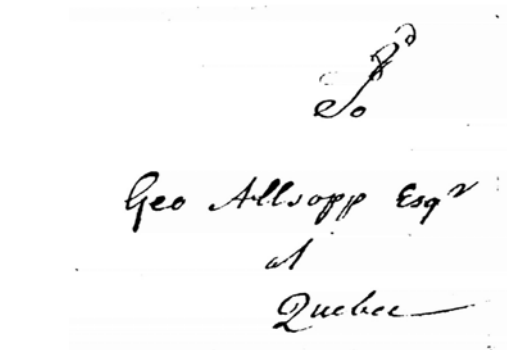 To
Geo Allsopp Esqr
at
Quebec